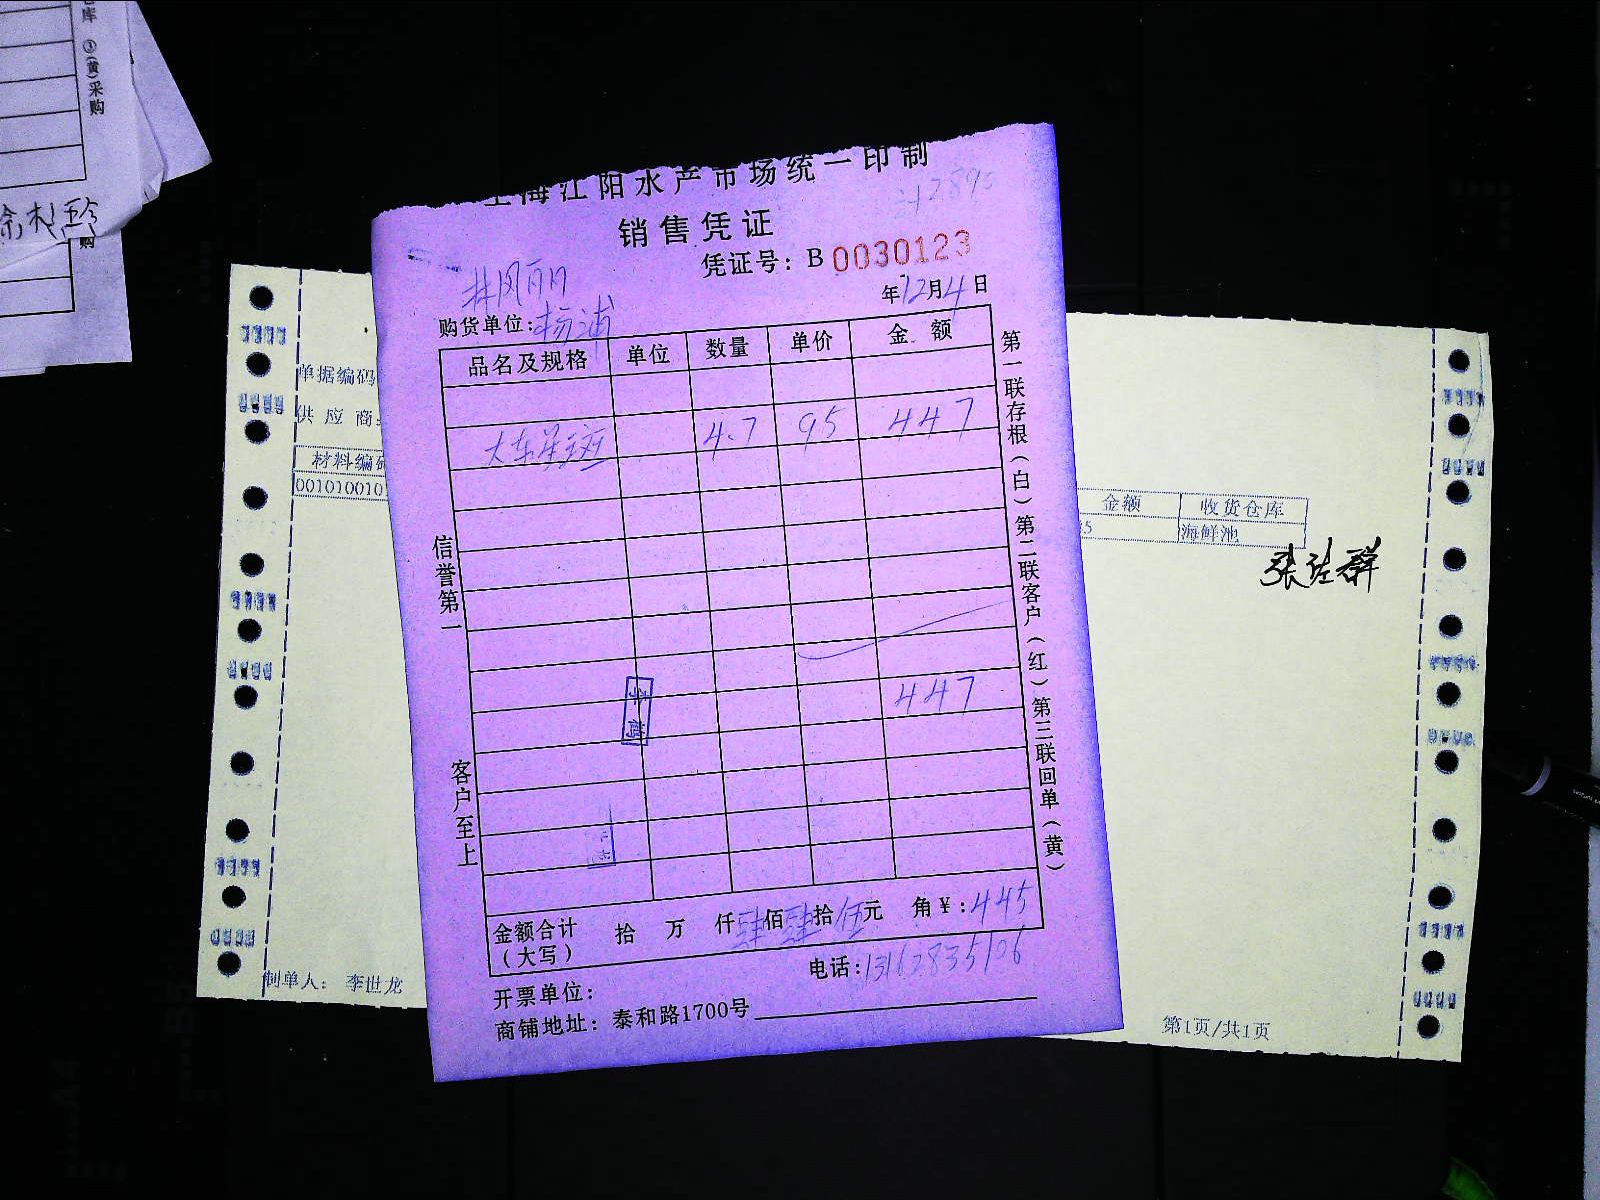 库 ③(黄)采购
购
上海江阳水产市场统一印制
销售凭证
凭证号：B 0030123
年12月4日
购货单位：杨浦
品名及规格 单位 数量 单价 金额
大东星斑 4.7 95 447
447
信誉第一
客户至上
第一联存根（白）第二联客户（红）第三联回单（黄）
金额合计（大写） 拾 万 仟肆佰肆拾伍元 角¥：445
电话：13162835106
开票单位：
商铺地址：泰和路1700号
单据编码
供应商：
材料编码
00101001
金额 收货仓库
5 海鲜池
制单人： 李世龙
第1页/共1页